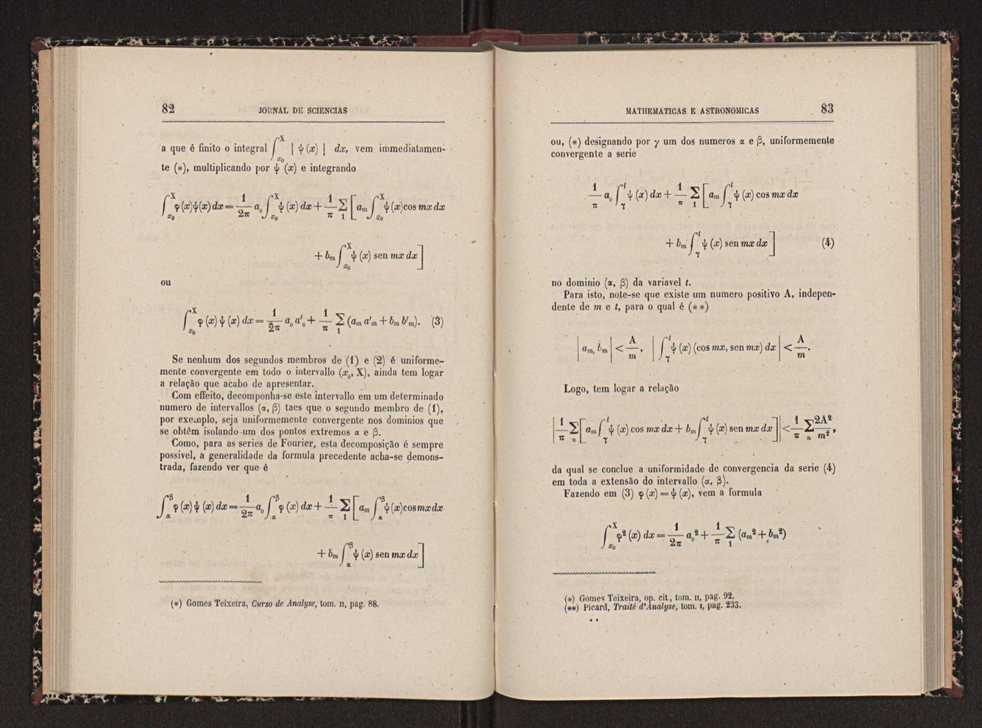 82 JORNAL DE SCIENCIAS
a que é finito o integral ∫_{x₀}^{X} | ψ (x) | dx, vem immediatamen-
te (*), multiplicando por ψ (x) e integrando
∫_{x₀}^{X} φ (x) ψ (x) dx = 1/2π a₀ ∫_{x₀}^{X} ψ (x) dx + 1/π Σ₁ [ a_m ∫_{x₀}^{X} ψ (x) cos mx dx
+ b_m ∫_{x₀}^{X} ψ (x) sen mx dx ]
ou
∫_{x₀}^{X} φ (x) ψ (x) dx = 1/2π a₀ a'₀ + 1/π Σ₁ (a_m a'_m + b_m b'_m). (3)
Se nenhum dos segundos membros de (1) e (2) é uniforme-
mente convergente em todo o intervallo (x₀, X), ainda tem logar
a relação que acabo de apresentar.
Com effeito, decomponha-se este intervallo em um determinado
numero de intervallos (α, β) taes que o segundo membro de (1),
por exemplo, seja uniformemente convergente nos dominios que
se obtêm isolando um dos pontos extremos α e β.
Como, para as series de Fourier, esta decomposição é sempre
possivel, a generalidade da formula precedente acha-se demons-
trada, fazendo ver que é
∫_α^β φ (x) ψ (x) dx = 1/2π a₀ ∫_α^β φ (x) dx + 1/π Σ₁ [ a_m ∫_α^β ψ (x) cos mx dx
+ b_m ∫_α^β ψ (x) sen mx dx ]
(*) Gomes Teixeira, Curso de Analyse, tom. II, pag. 88.
MATHEMATICAS E ASTRONOMICAS 83
ou, (*) designando por γ um dos numeros α e β, uniformemente
convergente a serie
1/π a₀ ∫_γ^t ψ (x) dx + 1/π Σ₁ [ a_m ∫_γ^t ψ (x) cos mx dx
+ b_m ∫_γ^t ψ (x) sen mx dx ] (4)
no dominio (α, β) da variavel t.
Para isto, note-se que existe um numero positivo A, indepen-
dente de m e t, para o qual é (**)
| a_m, b_m | < A/m, | ∫_γ^t ψ (x) (cos mx, sen mx) dx | < A/m.
Logo, tem logar a relação
| 1/π Σ_n [ a_m ∫_γ^t ψ (x) cos mx dx + b_m ∫_γ^t ψ (x) sen mx dx ] | < 1/π Σ_n 2A²/m²,
da qual se conclue a uniformidade de convergencia da serie (4)
em toda a extensão do intervallo (α, β).
Fazendo em (3) φ (x) = ψ (x), vem a formula
∫_{x₀}^{X} φ² (x) dx = 1/2π a₀² + 1/π Σ₁ (a_m² + b_m²)
(*) Gomes Teixeira, op. cit., tom. II, pag. 92.
(**) Picard, Traité d'Analyse, tom. I, pag. 233.